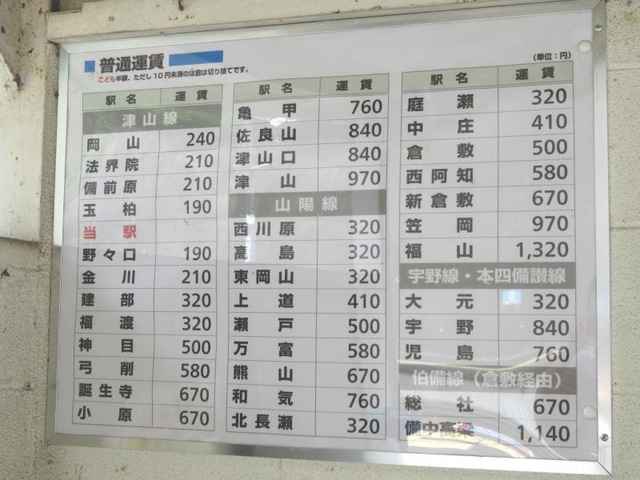 普通運賃
こども半額、ただし10円未満のは数は切り捨てです。
(単位:円)
駅名 運賃
津山線
岡山 240
法界院 210
備前原 210
玉柏 190
当駅
野々口 190
金川 210
建部 320
福渡 320
神目 500
弓削 580
誕生寺 670
小原 670
駅名 運賃
亀甲 760
佐良山 840
津山口 840
津山 970
山陽線
西川原 320
高島 320
東岡山 320
上道 410
瀬戸 500
万富 580
熊山 670
和気 760
北長瀬 320
駅名 運賃
庭瀬 320
中庄 410
倉敷 500
西阿知 580
新倉敷 670
笠岡 970
福山 1,320
宇野線・本四備讃線
大元 320
宇野 840
児島 760
伯備線(倉敷経由)
総社 670
備中高梁 1,140